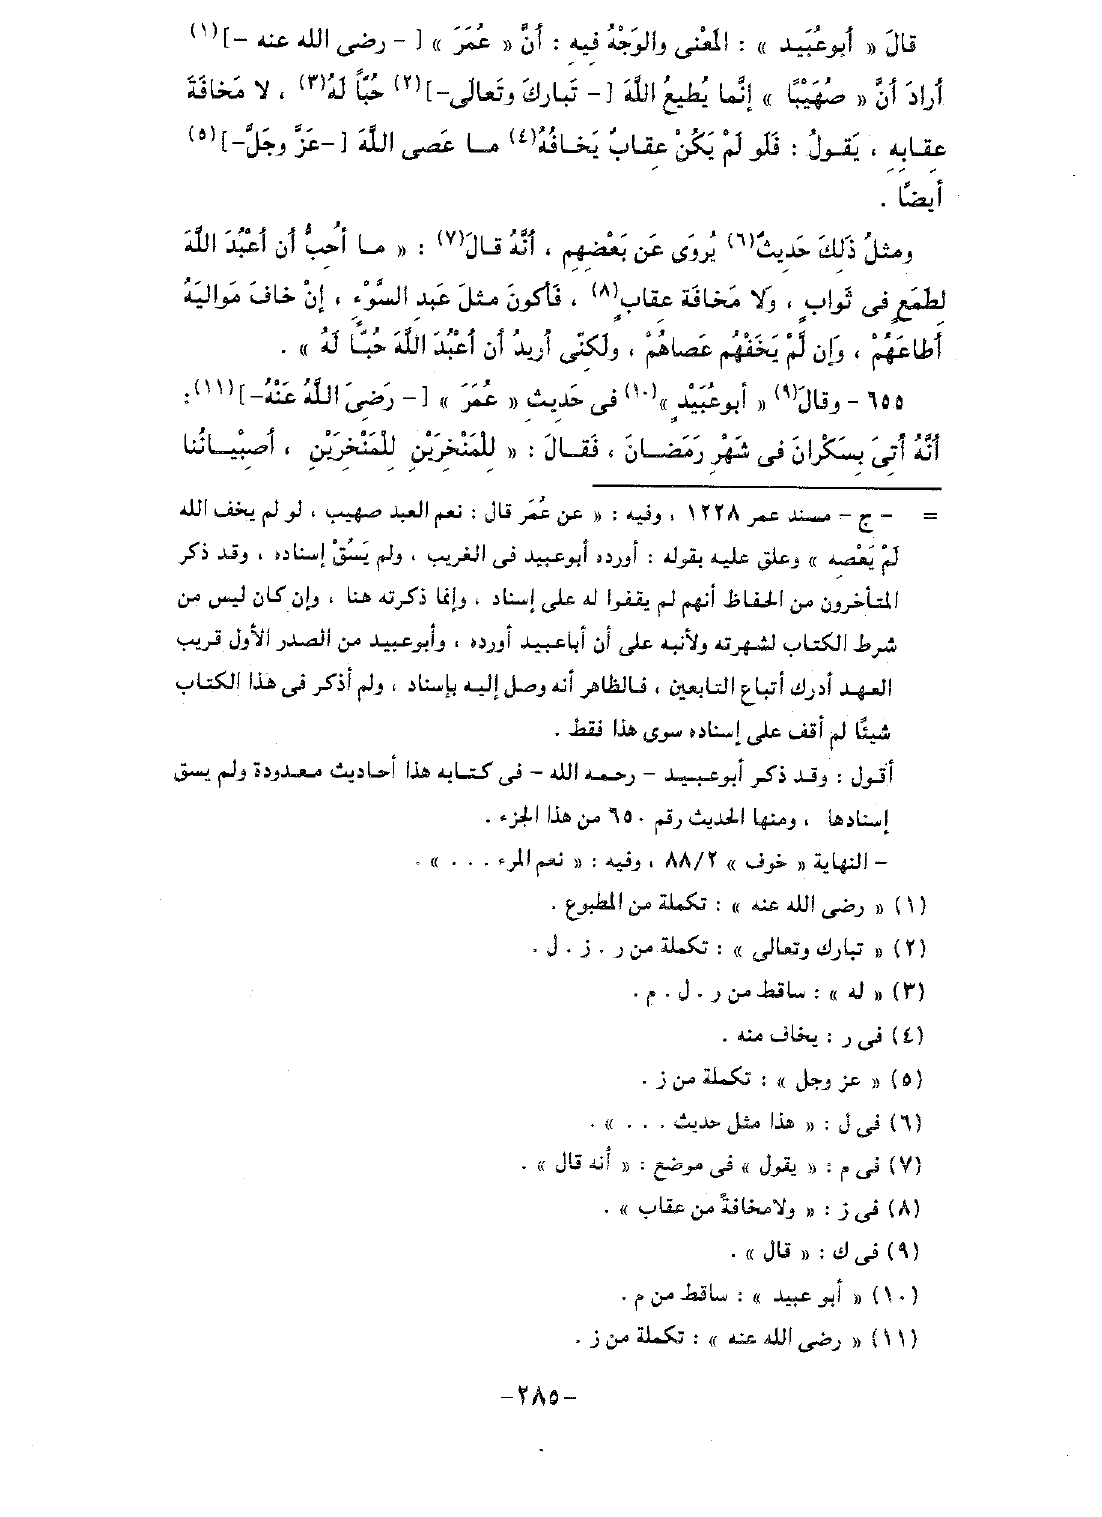 قالَ « أبوعُبَيد » : المَعْنى والوَجْهُ فيهِ : أنَّ « عُمَرَ » [ – رضى الله عنه –](١)
أرادَ أنَّ « صُهَيْبًا » إنَّما يُطيعُ اللَّهَ [ – تَباركَ وتَعالَى–](٢) حُبًّا لَهُ(٣) ، لا مَخافَةَ
عِقابِهِ ، يَقولُ : فَلَو لَمْ يَكُنْ عِقابٌ يَخافُهُ(٤) ما عَصى اللَّهَ [ –عَزَّ وجَلَّ–](٥)
أيضًا .
ومثلُ ذَلِكَ حَديثٌ(٦) يُروَى عَن بَعْضِهِم ، أنَّهُ قالَ(٧) : « ما أُحِبُّ أن أَعْبُدَ اللَّهَ
لِطَمَعٍ فى ثَوابٍ ، وَلا مَخافَةَ عِقابٍ(٨) ، فَأكونَ مثلَ عَبدِ السَّوْءِ ، إنْ خافَ مَوالِيَهُ
أطاعَهُمْ ، وَإن لَّمْ يَخَفْهُم عَصاهُمْ ، ولَكِنّى أُريدُ أن أعْبُدَ اللَّهَ حُبًّا لَهُ » .
٦٥٥ – وقالَ(٩) « أبوعُبَيْدٍ »(١٠) فى حَديثِ « عُمَرَ » [ – رَضِىَ اللَّهُ عَنْهُ–](١١):
أنَّهُ أُتِىَ بِسَكْرانَ فى شَهْرِ رَمَضانَ ، فَقالَ : « لِلْمَنْخِرَيْنِ لِلْمَنْخِرَيْنِ ، أصِبْيانُنا
= – ج – مسند عمر ١٢٢٨ ، وفيه : « عن عُمَر قال : نعم العبد صهيب ، لو لم يخف الله
لَمْ يَعْصِه » وعلق عليه بقوله : أورده أبوعبيد فى الغريب ، ولم يَسُقْ إسناده ، وقد ذكر
المتأخرون من الحفاظ أنهم لم يقفوا له على إسناد ، وإنما ذكرته هنا ، وإن كان ليس من
شرط الكتاب لشهرته ولأنبه على أن أباعبيد أورده ، وأبوعبيد من الصدر الأول قريب
العهد أدرك أتباع التابعين ، فالظاهر أنه وصل إليه بإسناد ، ولم أذكر فى هذا الكتاب
شيئًا لم أقف على إسناده سوى هذا فقط .
أقول : وقد ذكر أبوعبيد – رحمه الله – فى كتابه هذا أحاديث معدودة ولم يسق
إسنادها ، ومنها الحديث رقم ٦٥٠ من هذا الجزء .
– النهاية « خوف » ٨٨/٢ ، وفيه : « نعم المرء . . . » .
(١) « رضى الله عنه » : تكملة من المطبوع .
(٢) « تبارك وتعالى » : تكملة من ر . ز . ل .
(٣) « له » : ساقط من ر . ل . م .
(٤) فى ر : يخاف منه .
(٥) « عز وجل » : تكملة من ز .
(٦) فى ل : « هذا مثل حديث . . . » .
(٧) فى م : « يقول » فى موضع : « أنه قال » .
(٨) فى ز : « ولامخافةً من عقاب » .
(٩) فى ك : « قال » .
(١٠) « أبو عبيد » : ساقط من م .
(١١) « رضى الله عنه » : تكملة من ز .
–٢٨٥–